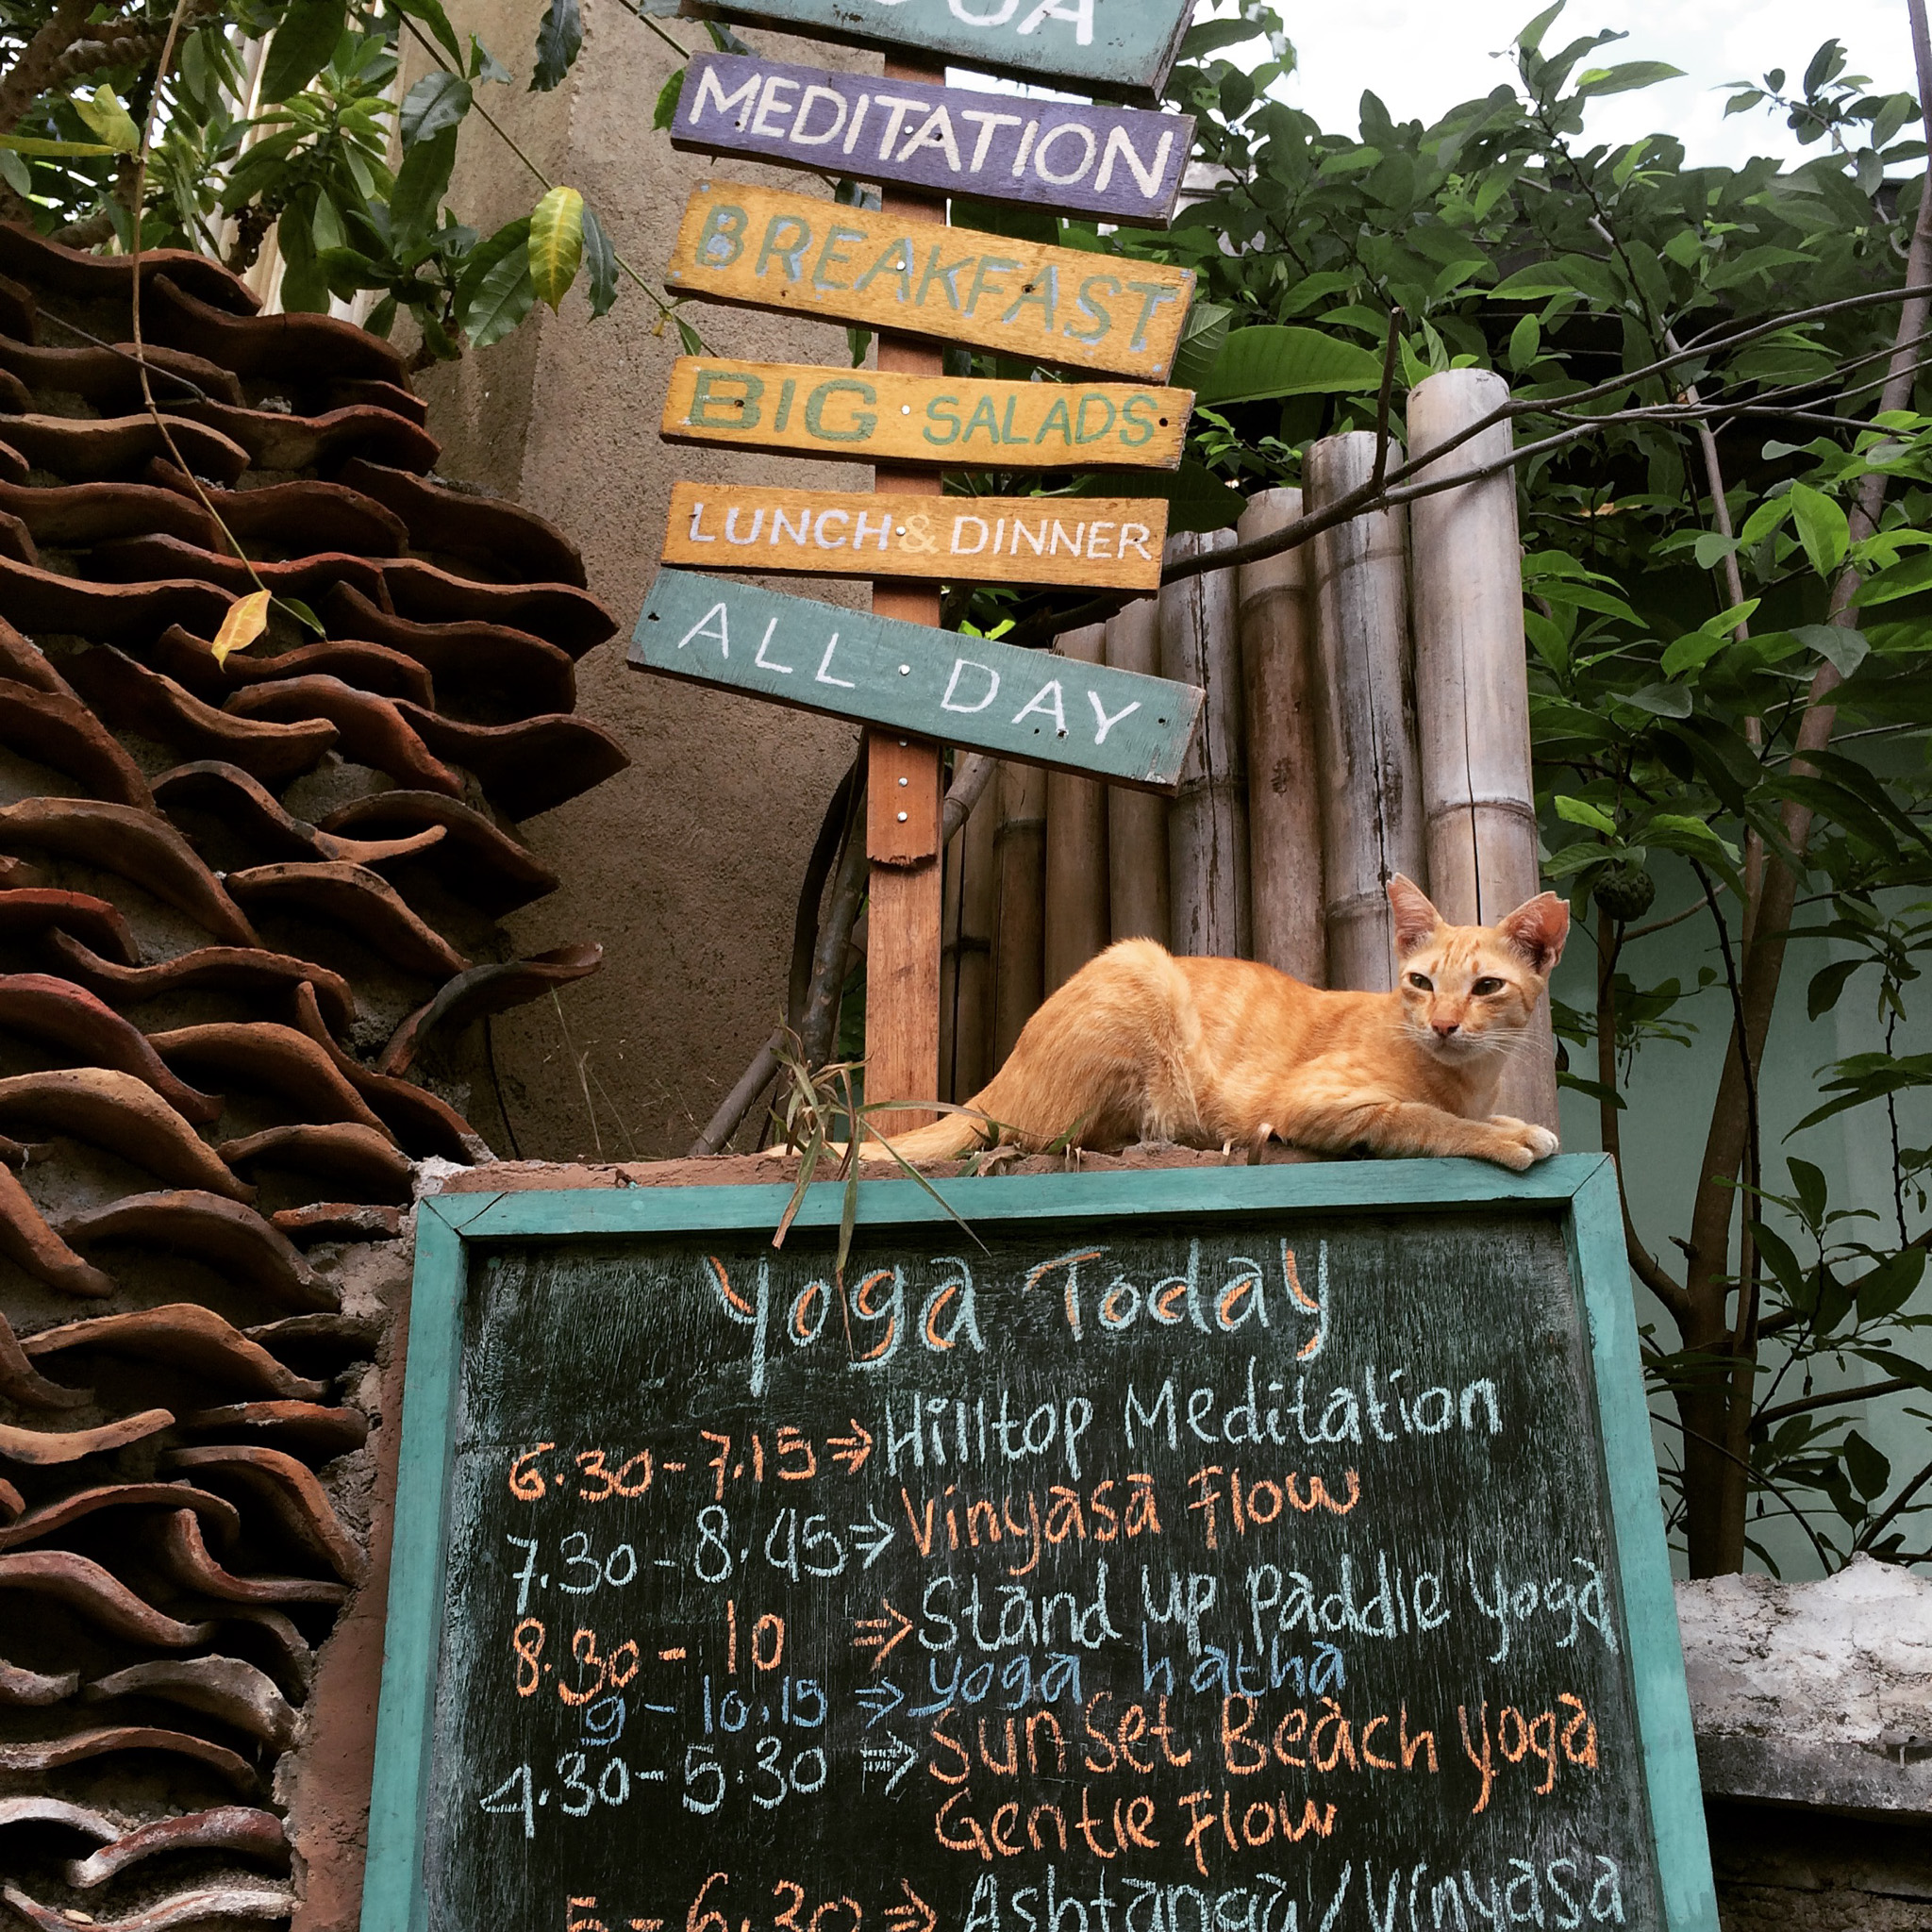 MEDITATION
BREAKFAST
BIG SALADS
LUNCH & DINNER
ALL DAY
Yoga Today
6.30 - 7.15 ⇒ Hilltop Meditation
7.30 - 8.45 ⇒ Vinyasa Flow
8.30 - 10 ⇒ Stand up paddle yoga
9 - 10.15 ⇒ yoga hatha
4.30 - 5.30 ⇒ Sunset Beach yoga
Gentle Flow
5 - 6.30 ⇒ Ashtanga / Vinyasa